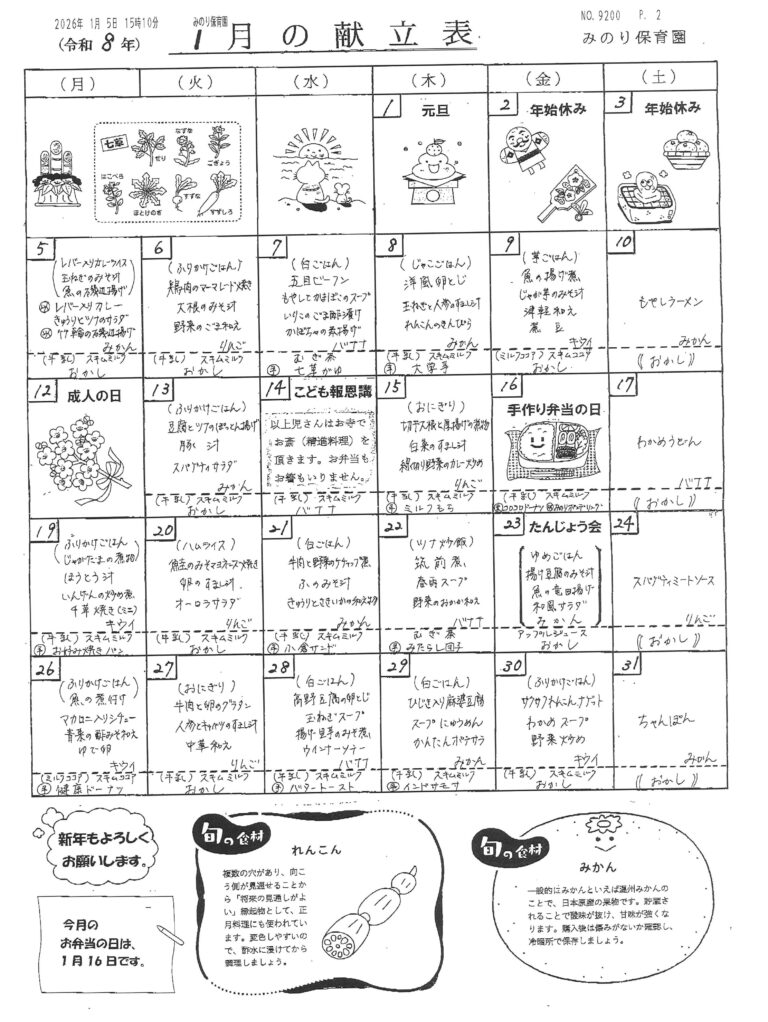 2026年 1月 5日 15時10分
みのり保育園
NO. 9200 P. 2
(令和 8 年)
1 月 の 献 立 表
みのり保育園
(月)
(火)
(水)
(木)
(金)
(土)
七草
せり
なずな
ごぎょう
はこべら
ほとけのざ
すずな
すずしろ
1 元旦
2 年始休み
3 年始休み
5
レバー入りカレーライス
玉ねぎのみそ汁
魚の磯辺揚げ
レバー入りカレー
きゅうりとツナのサラダ
竹輪の磯辺揚げ
みかん
(牛乳) スキムミルク
おかし
6
(ふりかけごはん)
鶏肉のマーマレード焼き
大根のみそ汁
野菜のごま和え
りんご
(牛乳) スキムミルク
おかし
7
(白ごはん)
五目ビーフン
もやしとかまぼこのスープ
いりこのごま酢漬け
かぼちゃの素揚げ
バナナ
むぎ茶
手 七草がゆ
8
(じゃこごはん)
洋風卵とじ
玉ねぎと人参のすまし汁
れんこんのきんぴら
みかん
(牛乳) スキムミルク
手 大学芋
9
(芋ごはん)
魚の揚げ煮
じゃが芋のみそ汁
津軽和え
煮豆
キウイ
(ミルクココア) スキムココア
おかし
10
もやしラーメン
みかん
《おかし》
12 成人の日
13
(ふりかけごはん)
豆腐とツナのぽっとん揚げ
豚汁
スパゲティのサラダ
みかん
(牛乳) スキムミルク
おかし
14 こども報恩講
以上児さんはお寺で
お斎(精進料理)を
頂きます。お弁当も
お箸もいりません。
(牛乳) スキムミルク
バナナ
15
(おにぎり)
切干大根と厚揚げの煮物
白菜のすまし汁
細切り野菜のカレー炒め
りんご
(牛乳) スキムミルク
手 ミルクもち
16
手作り弁当の日
(牛乳) スキムミルク
17
わかめうどん
バナナ
《おかし》
19
ふりかけごはん
じゃがたまの煮物
ほうとう汁
いんげんの炒め煮
千草焼き(ミニ)
キウイ
(牛乳) スキムミルク
手 お好み焼きパン
20
(ハムライス)
魚のみそマヨネーズ焼き
卵のすまし汁
オーロラサラダ
りんご
(牛乳) スキムミルク
おかし
21
(白ごはん)
牛肉と野菜のケチャップ煮
ふのみそ汁
きゅうりとささいかの和え物
みかん
(牛乳) スキムミルク
手 小倉サンド
22
(ツナ炒飯)
筑前煮
春雨スープ
野菜のおかか和え
バナナ
むぎ茶
手 みたらし団子
23 たんじょう会
ゆめごはん
揚げ豆腐のみそ汁
魚の竜田揚げ
和風サラダ
みかん
アップルジュース
おかし
24
スパゲティミートソース
りんご
《おかし》
26
(ふりかけごはん)
魚の煮付け
マカロニ入りシチュー
青菜の酢みそ和え
ゆで卵
キウイ
(ミルクココア) スキムココア
手 健康ドーナツ
27
(おにぎり)
牛肉と卵のグラタン
人参とキャベツのすまし汁
中華和え
りんご
(牛乳) スキムミルク
おかし
28
(白ごはん)
高野豆腐の卵とじ
玉ねぎスープ
揚げ里芋のみそ煮
ウインナーソテー
バナナ
(牛乳) スキムミルク
手 バタートースト
29
(白ごはん)
ひじき入り麻婆豆腐
スープにゅうめん
かんたんポテサラ
みかん
(牛乳) スキムミルク
手 インドサモサ
30
(ふりかけごはん)
サクサクれんこんナゲット
わかめスープ
野菜炒め
キウイ
(牛乳) スキムミルク
おかし
31
ちゃんぽん
みかん
《おかし》
新年もよろしく
お願いします。
今月の
お弁当の日は、
1月16日です。
旬の食材
れんこん
複数の穴があり、向こ
う側が見通せることから
「将来の見通しがよ
い」縁起物として、正
月料理にも使われてい
ます。変色しやすいの
で、酢水に浸けてから
調理しましょう。
旬の食材
みかん
一般的にみかんといえば温州みかんの
ことで、日本原産の果物です。貯蔵さ
れることで酸味が抜け、甘味が強くな
ります。購入後は傷みがないか確認し、
冷暗所で保存しましょう。